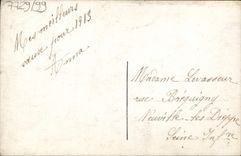 7729/99
Mes meilleurs
vœux pour 1913
Anna
Madame Levasseur
rue Bréquigny
Neuville les Dieppe
Seine Infre